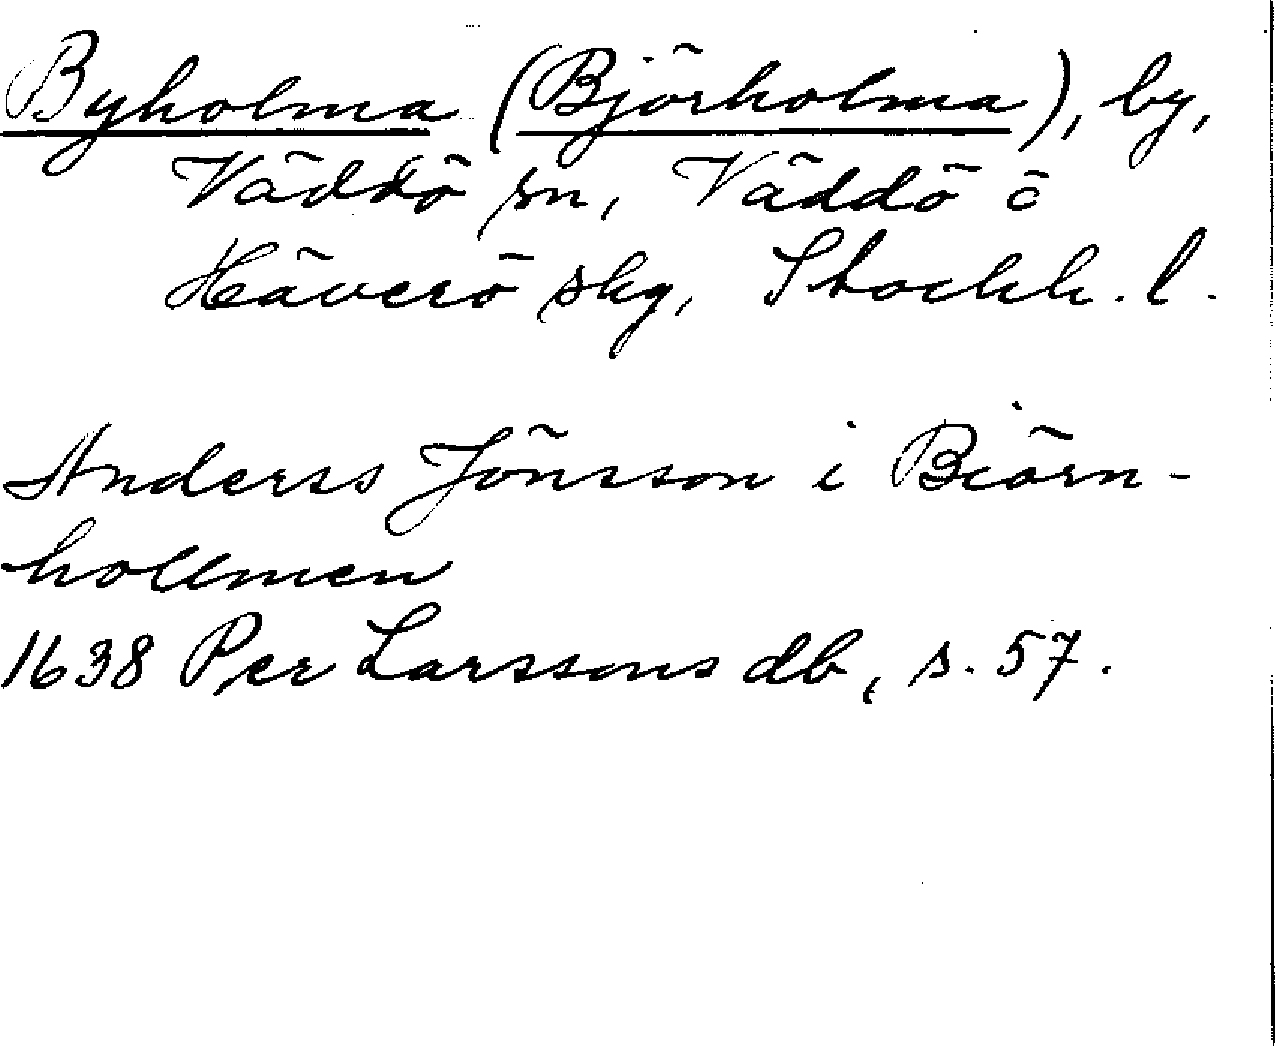 Byholma (Björholma), by,
Väddö sn, Väddö o
Häverö skg, Stockh. l.
Anderss Jönsson i Biörn-
hollmen
1638 Per Larssons db, s. 57.